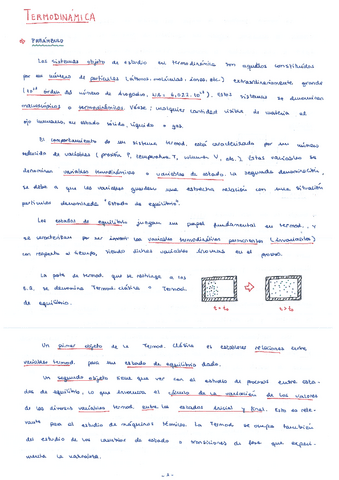 TERMODINÁMICA
→ PREÁMBULO
Los sistemas objeto de estudio en termodinámica son aquellos constituidos
por un número de partículas (átomos, moléculas, iones, etc.) extraordinariamente grande
(10²³ orden del número de Avogadro, NA = 6,022·10²³). Estos sistemas se denominan
macroscópicos o termodinámicos. Véase: cualquier cantidad visible de materia al
ojo humano, en estado sólido, líquido o gas.
El comportamiento de un sistema termod. está caracterizado por un número
reducido de variables (presión P, temperatura T, volumen V, etc.). Estas variables se
denominan variables termodinámicas o variables de estado. La segunda denominación,
se debe a que las variables guardan una estrecha relación con una situación
particular denominada "Estado de equilibrio".
Los estados de equilibrio juegan un papel fundamental en termod. y
se caracterizan por ser las variables termodinámicas permanentes (invariables)
con respecto al tiempo, siendo dichas variables en el proceso.
La parte de termod. que se restringe a los
E.E. se denomina Termod. clásica o Termod.
de equilibrio.
t = t₀ t > t₀
Un primer objeto de la Termod. clásica es establecer relaciones entre
variables termod. para un estado de equilibrio dado.
Un segundo objeto tiene que ver con el estudio de procesos entre esta-
dos de equilibrio, lo que involucra el cálculo de la variación de los valores
de las diversas variables termod. entre los estados inicial y final. Esto es rele-
vante para el estudio de máquinas térmicas. La Termod. se ocupa también
del estudio de los cambios de estado o transiciones de fase que experi-
menta la sustancia.